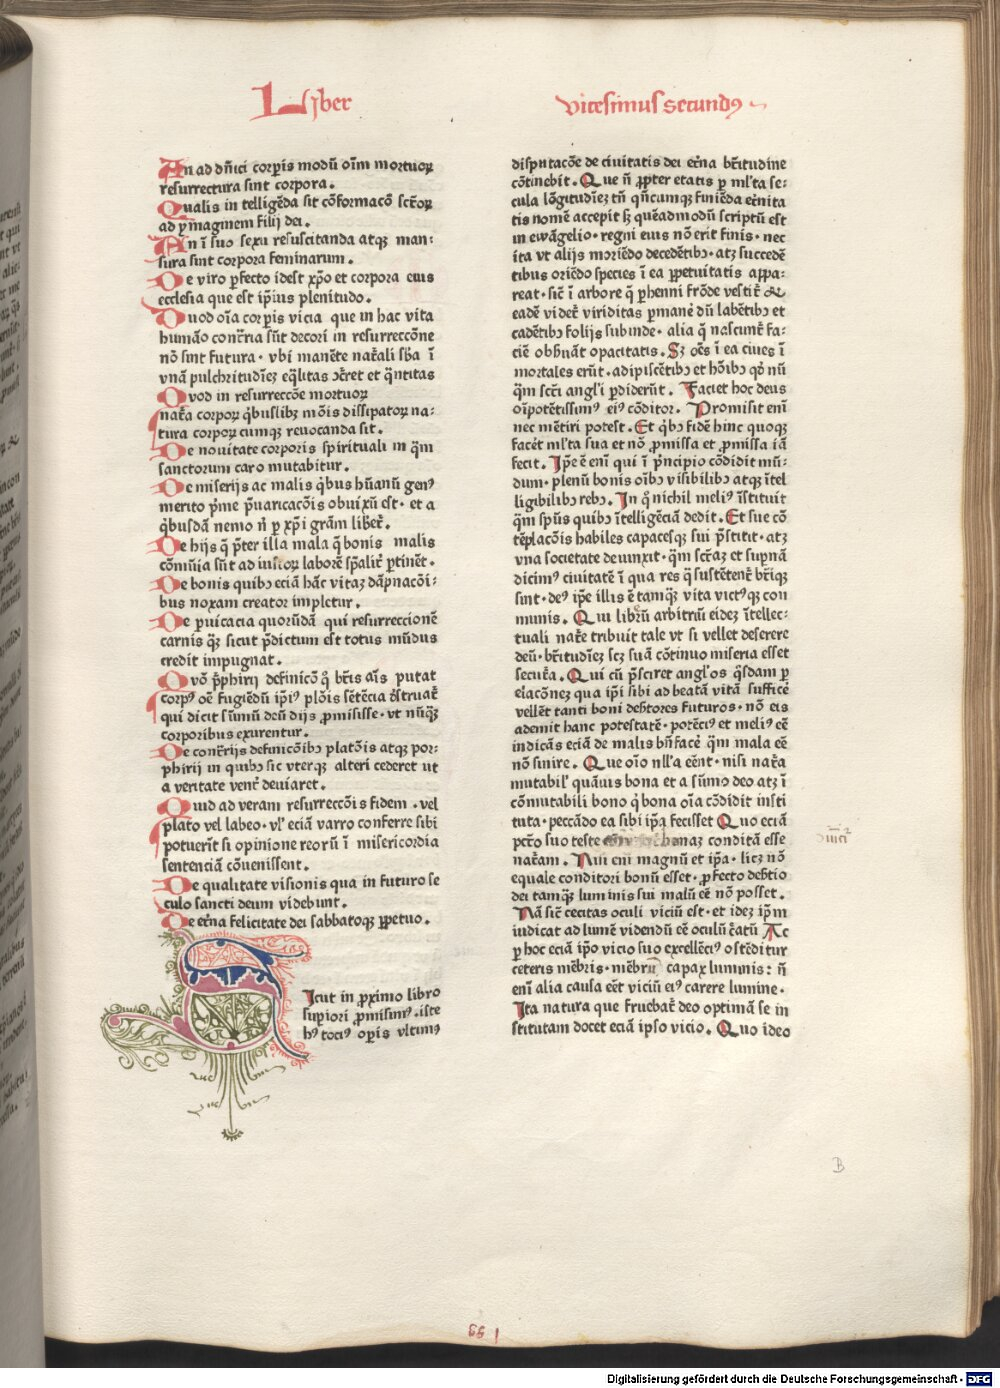 Liber vicesimus secundꝰ
An ad dn̄ici corpis modū oīm mortuoꝝ
resurrectura sint corpora.
Qualis in telligēda sit cōformacō sctōꝝ
ad ymaginem filij dei.
An ī suo sexu resuscitanda atqꝫ man:
sura sint corpora feminarum.
De viro pfecto idest xp̄o et corpora eius
ecclesia que est ip̄ius plenitudo.
Quod oīa corpis vicia que in hac vita
humāo con̄tria sūt decori in resurreccōne
nō sint futura. vbi manēte nat̄ali sb̄a ī
vnā pulchritudīeꝫ eq̄litas ꝯcret et q̄ntitas
Quod in resurreccōe mortuoꝝ
nat̄a corpoꝝ q̄buslibꝫ mōis dissipatoꝝ na:
tura corpoꝝ cumqꝫ reuocanda sit.
De nouitate corporis spirituali in q̄m
sanctorum caro mutabitur.
De miserijs ac malis q̄bus hūanū genꝰ
merito p̄me p̄uaricacōis obuixū est. et a
q̄busdā nemo n̄ p xp̄i grām libet̄.
De hijs q̄ p̄ter illa mala q̄ bonis malis
cōmūia sūt ad iustoꝝ laborē sp̄alit̄ ptinēt.
De bonis quibꝰ eciā hāc vitaꝫ dāpnacōi:
bus noxam creator impletur.
De puicacia quorūdā qui resurreccionē
carnis qꝫ sicut p̄dictum est totus mūdus
credit impugnat.
Qvō p̄phirij definicō q̄ btīs aīs putat
corpꝰ oē fugiēdū ip̄iꝰ plōis sētēcia dstruat̄
qui dicit sūmū deū dijs ꝓmisisse. vt nūqꝫ
corporibus exurentur.
De cont̄rijs definicōibꝰ platōis atqꝫ por:
phirij in quibꝰ sic vterqꝫ alteri cederet ut
a veritate vent̄ deuiaret.
Quid ad veram resurreccōis fidem. vel
plato vel labeo. vl' eciā varro conferre sibi
potuerīt si opinione reorū ī misericordia
sentenciā cōuenissent.
De qualitate visionis qua in futuro se
culo sancti deum videbunt.
De et̄na felicitate dei sabbatoqꝫ ppetuo.
SIcut in ꝓximo libro
supiori ꝓmisimꝰ. iste
hꝰ tociꝰ opis vltimꝰ
disputacōe de ciuitatis dei et̄na btitudine
cōtinebit. Que n̄ ꝓpter etatis p ml'ta se:
cula lōgitudīeꝫ tn̄ qn̄cumqꝫ finiēda et̄nita
tis nomē accepit sꝫ quēadmodū scriptū est
in ewāgelio. regni eius nō erit finis. nec
ita vt alijs moriēdo decedētibꝰ. atꝫ succedē
tibus oriēdo species ī ea ppetuitatis appa:
reat. sic̄ ī arbore q̄ phenni frōde vestit̄ &
eadē videt̄ viriditas pmanē dū labētibꝰ et
cadētibꝰ folijs subinde. alia q̄ nascunt̄ fa:
ciē obūnāt opacitatis. Sꝫ oēs ī ea ciues ī
mortales erūt. adipiscētibꝰ et hōibꝰ qd' nū
q̄m scti angl'i pdiderūt. Faciet hoc deus
oīpotētissimꝰ eiꝰ cōditor. Promisit enī
nec mētiri potest. Et q̄bꝰ fidē hinc quoqꝫ
facēt ml'ta sua et nō ꝓmissa et ꝓmissa iā
fecit. Ip̄e ē enī qui ī p̄ncipio cōdidit mū:
dum. plenū bonis oībꝰ visibilibꝰ atqꝫ ītel
ligibilibꝰ rebꝰ. In q̄ nichil meliꝰ īstituit
q̄m sp̄us quibꝰ ītelligēciā dedit. Et sue cō
tēplacōis habiles capacesqꝫ sui p̄stitit. atꝫ
vna societate deuinxit. q̄m sctāꝫ et supnā
dicimꝰ ciuitatē ī qua res q̄ sustētent̄ bt̄iqꝫ
sint. deꝰ ip̄e illis ē tamqꝫ vita victꝰqꝫ con
munis. Qui librū arbitriū eideꝫ ītellec:
tuali nat̄e tribuit tale vt si vellet deserere
deū. btitudīeꝫ scꝫ suā cōtinuo miseria esset
secut̄a. Qui cū p̄sciret angl'os q̄sdam p
elacōneꝫ qua ip̄i sibi ad beatā vitā sufficē
vellēt tanti boni deb̄tores futuros. nō eis
ademit hanc potestatē. potēciꝰ et meliꝰ eē
indicās eciā de malis bn̄facē q̄m mala eē
nō sinire. Que oīo nll'a eēnt. nisi nat̄a
mutabil' quāuis bona et a sūmo deo atꝫ ī
cōmutabili bono q̄ bona oīa cōdidit insti
tuta. peccādo ea sibi ip̄a fecisset Quo eciā
pctō suo teste bonaꝫ conditā esse
nat̄am. Nisi enī magnū et ip̄a. licꝫ nō
equale conditori bonū esset. pfecto deb̄tio
dei tamqꝫ luminis sui malū eē nō posset.
Nā sic̄ cecitas oculi viciū est. et ideꝫ ip̄m
iudicat ad lumē videndū eē oculū c̄atū Ac
p hoc eciā ip̄o vicio suo excellēciꝰ ostēditur
ceteris mēbris. mēbrū capax luminis: n̄
enī alia causa eēt viciū eiꝰ carere lumine.
Ita natura que fruebat̄ deo optimā se in
stitutam docet eciā ipso vicio. Quo ideo
B
66 1
Digitalisierung gefördert durch die Deutsche Forschungsgemeinschaft - DFG